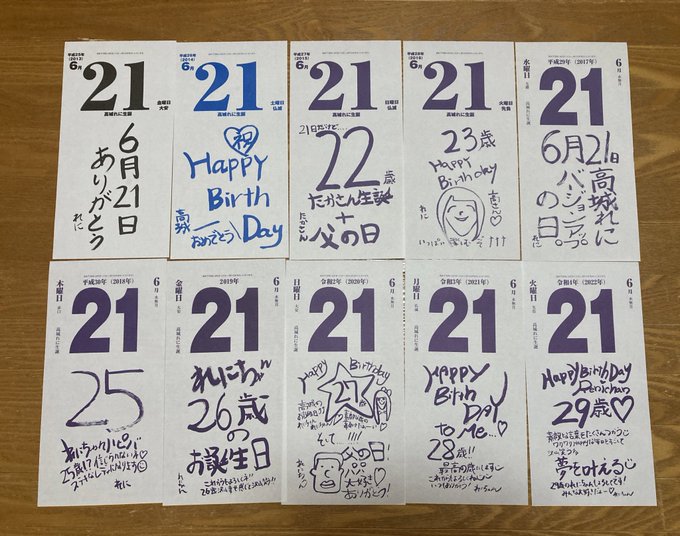 平成25年
(2013)
6月
21
金曜日
大安
高城れに生誕
6月21日
ありがとう
れに
平成26年
(2014)
6月
21
土曜日
仏滅
高城れに生誕
祝
Happy
Birth
Day
高城
おめでとう
平成27年
(2015)
6月
21
日曜日
仏滅
高城れに生誕
21日だけど....
22歳
たかさん生誕
+
父の日
たかさん
平成28年
(2016)
6月
21
火曜日
先負
高城れに生誕
23歳
Happy
Birthday
高さん♡
れに
いっぱい楽しむぞ!!!
平成29年(2017年)
6月
水無月
水曜日
21
高城れに生誕
6月21日
高城れに
バージョンアップ
の日。
れに
平成30年(2018年)
6月
水無月
木曜日
21
高城れに生誕
25
れに
2019年
6月
水無月
金曜日
大安
21
高城れに生誕
れにちゃん
26歳
の
お誕生日
令和2年(2020年)
6月
水無月
日曜日
大安
21
高城れに生誕
Happy Birthday
27
そして!!!!
父の日!
大好き
ありがとう!
令和3年(2021年)
6月
水無月
月曜日
仏滅
21
高城れに生誕
Happy
Birth
Day
to Me...♡
28歳!!
令和4年(2022年)
6月
水無月
火曜日
21
高城れに生誕
Happy Birth Day
Renichan
29歳♡
夢を叶える